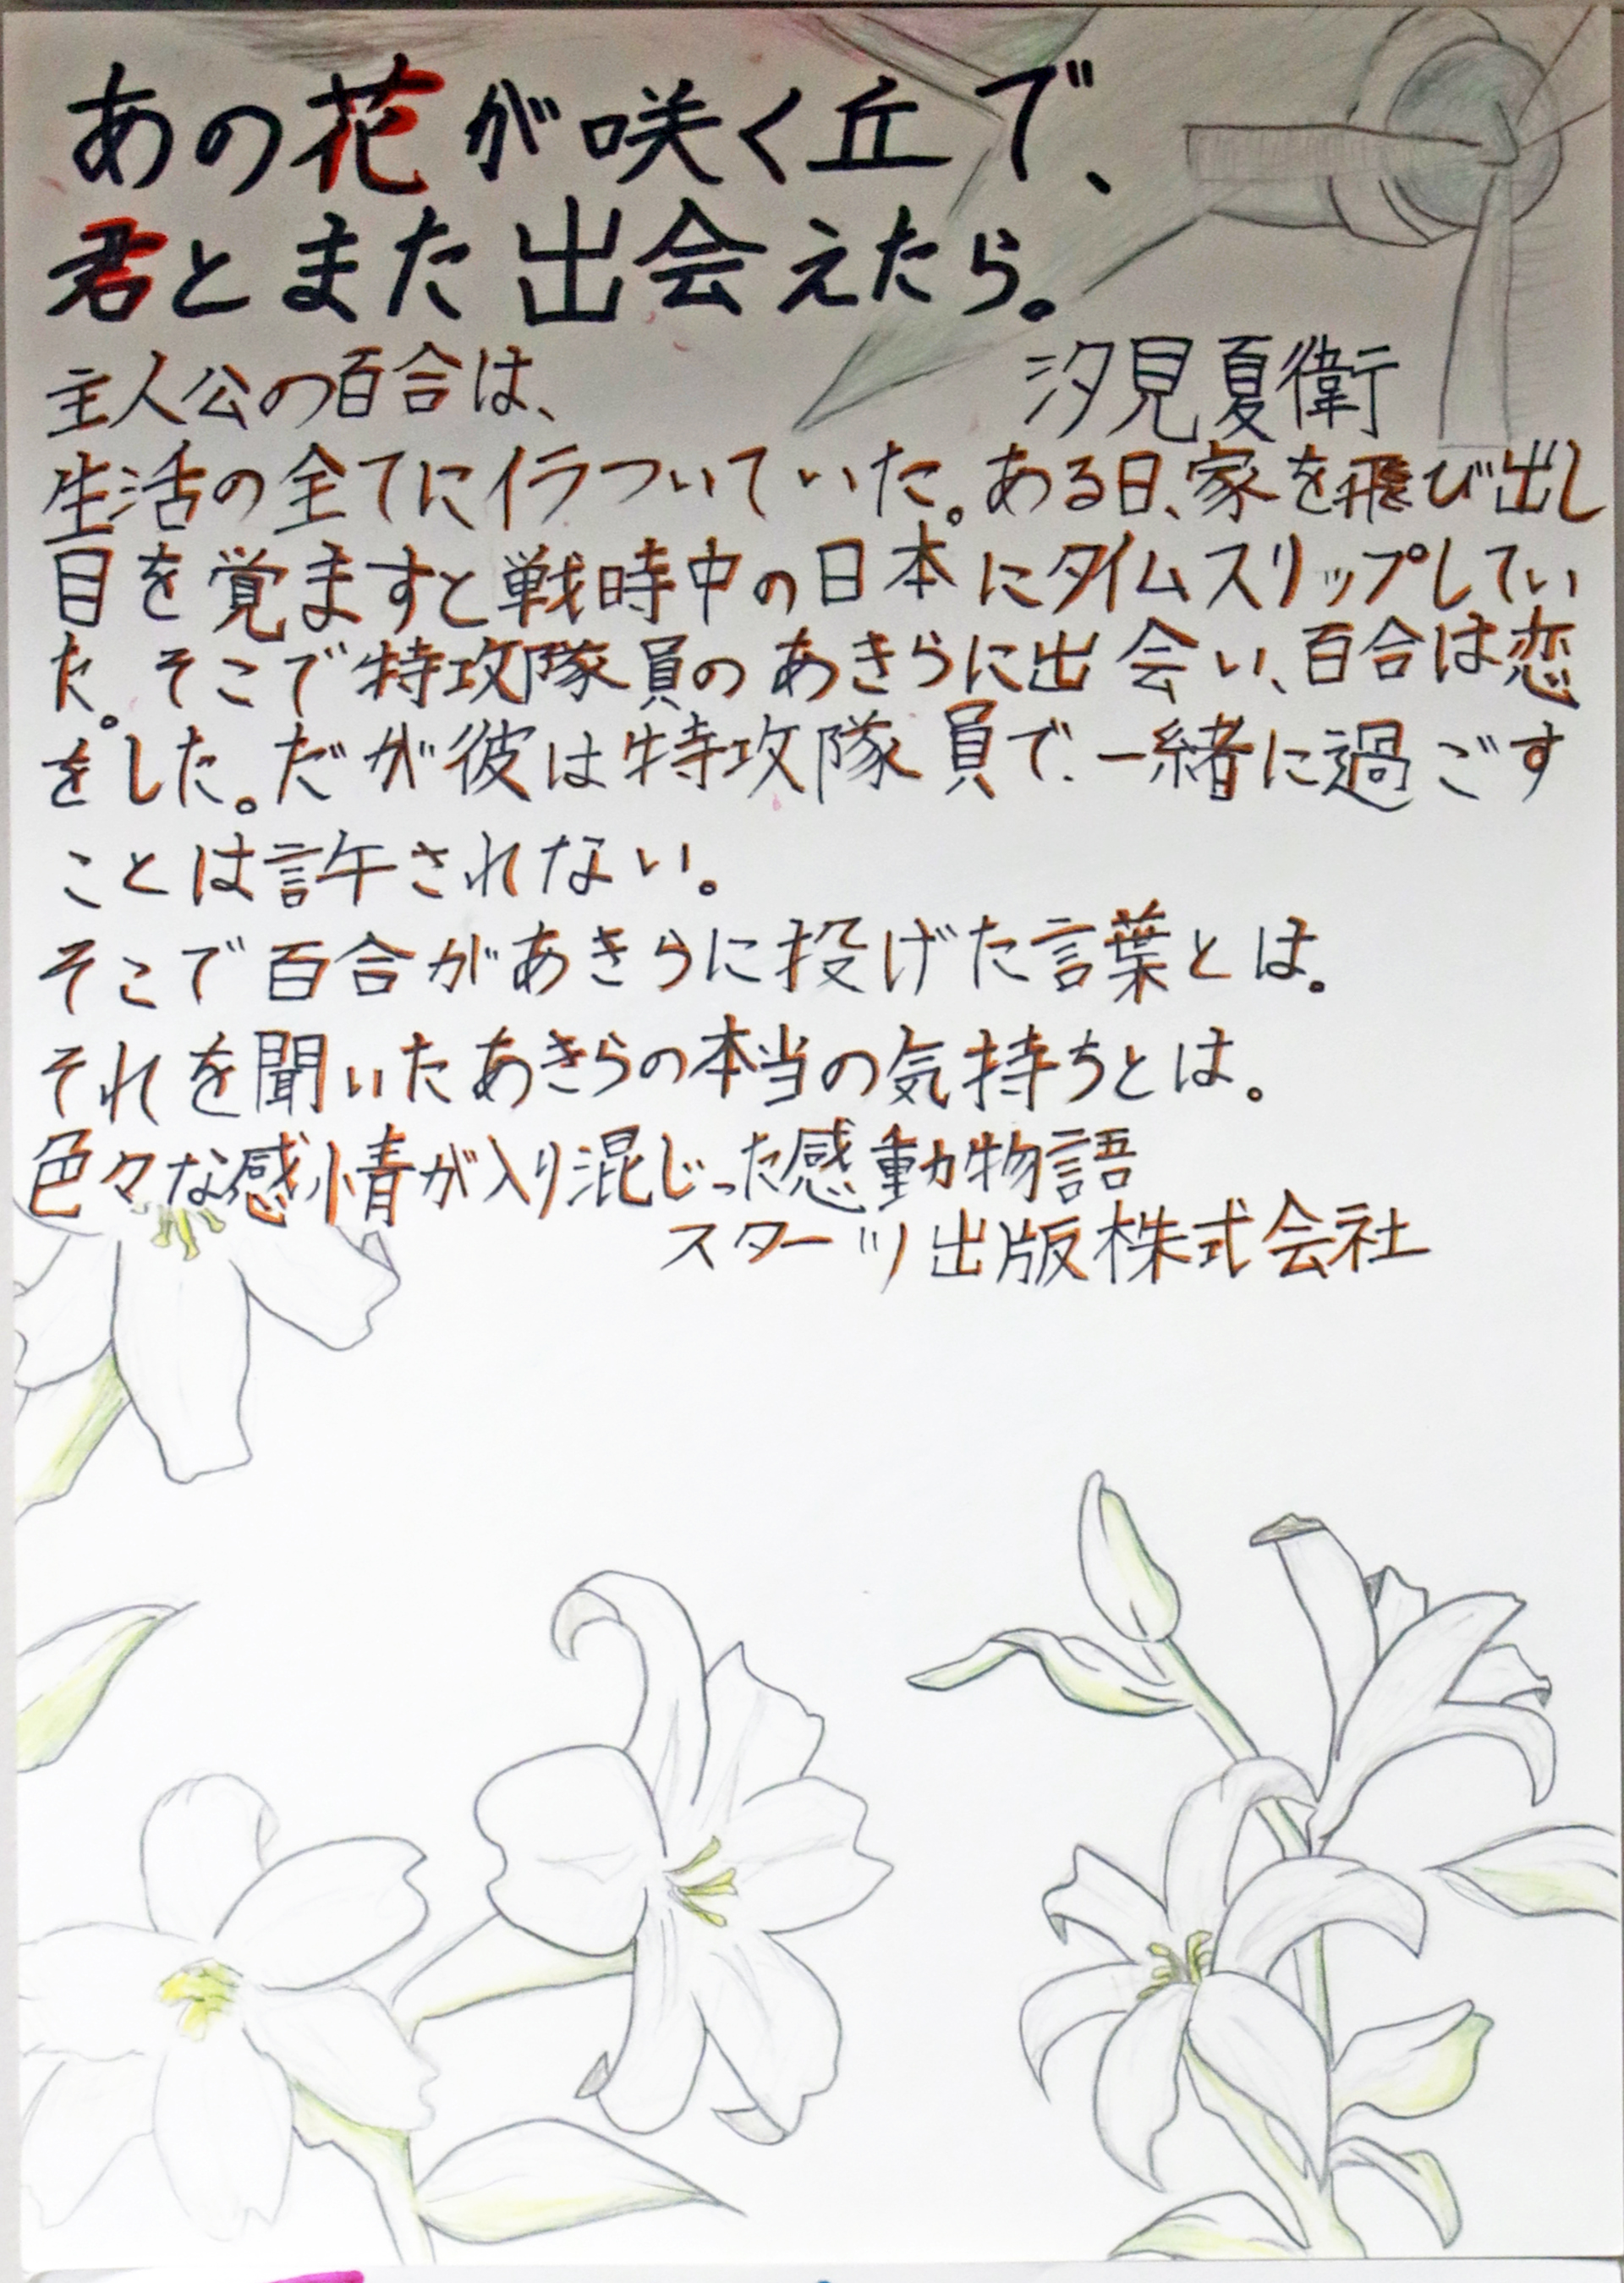 あの花が咲く丘で、
君とまた出会えたら。
汐見夏衛
主人公の百合は、
生活の全てにイラついていた。ある日、家を飛び出し
目を覚ますと戦時中の日本にタイムスリップしてい
た。そこで特攻隊員のあきらに出会い、百合は恋
をした。だが彼は特攻隊員で、一緒に過ごす
ことは許されない。
そこで百合があきらに投げた言葉とは。
それを聞いたあきらの本当の気持ちとは。
色々な感情が入り混じった感動物語
スターツ出版株式会社